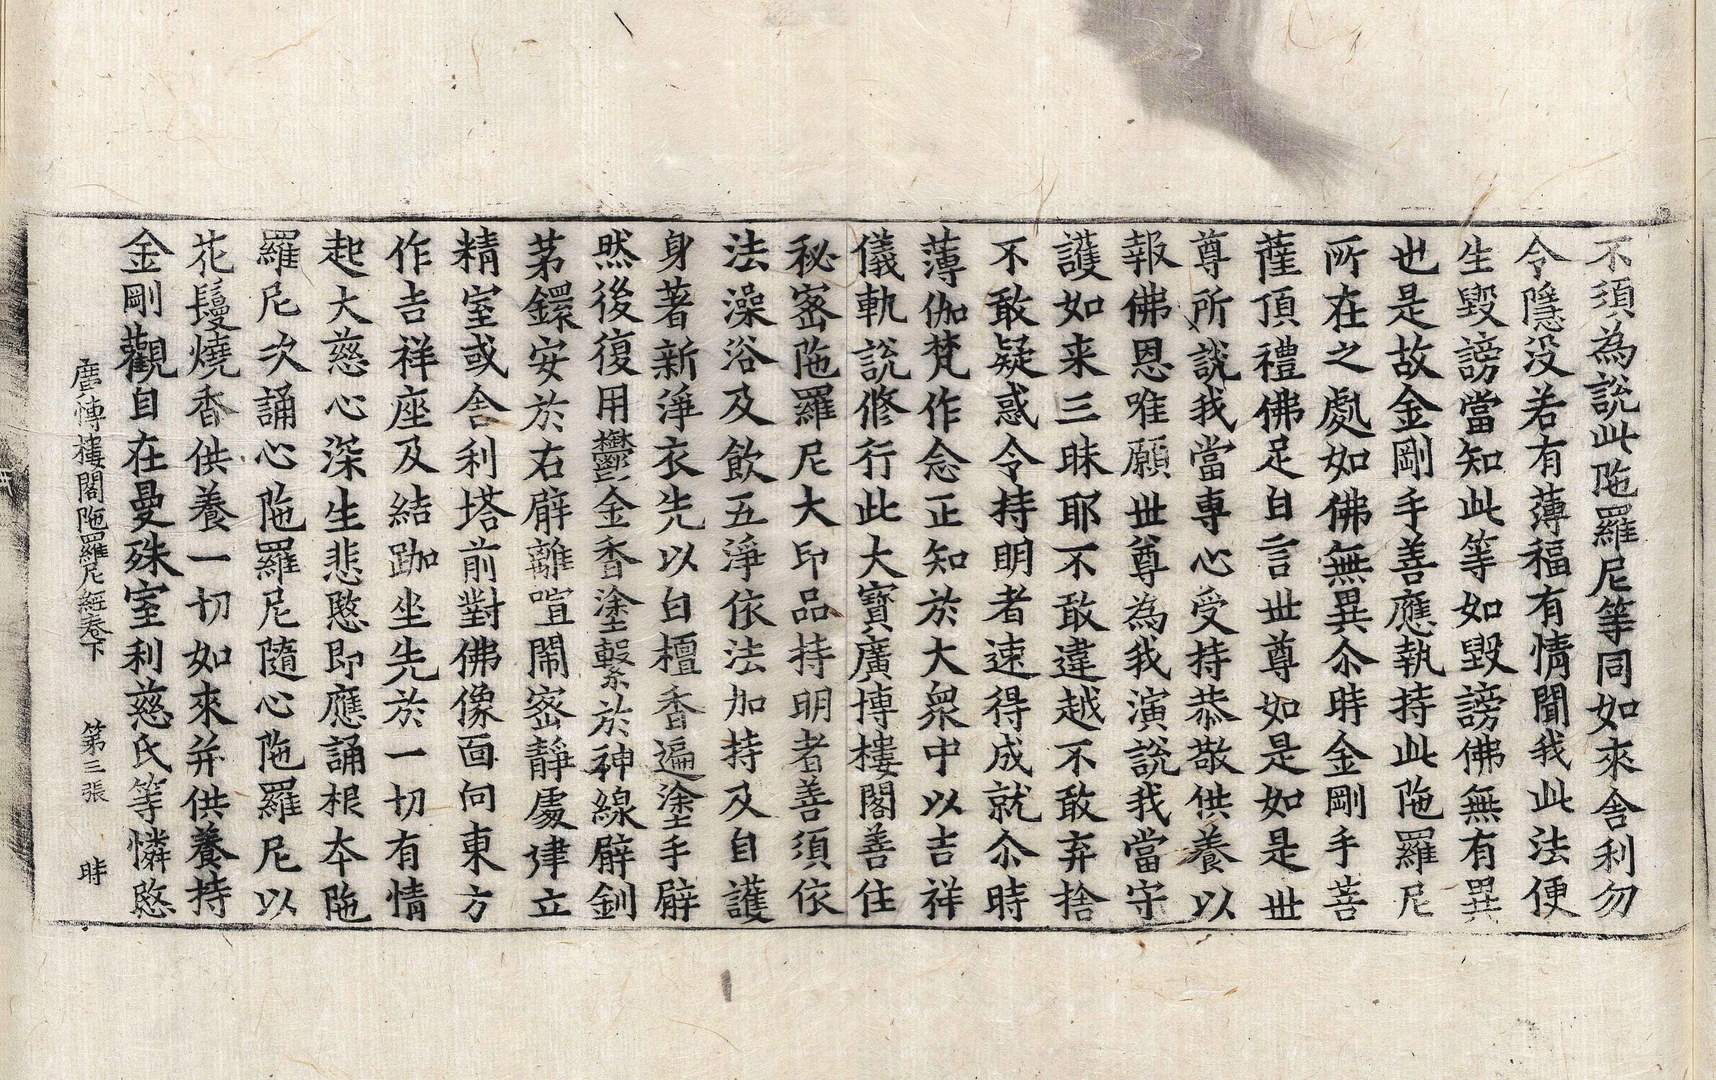 不須為說此陁羅尼等同如來舍利勿
令隱没若有薄福有情聞我此法便
生毀謗當知此等如毀謗佛無有異
也是故金剛手善應執持此陁羅尼
所在之處如佛無異尒時金剛手菩
薩頂禮佛足白言世尊如是如是世
尊所說我當專心受持恭敬供養以
報佛恩唯願世尊為我演說我當守
護如来三昧耶不敢違越不敢弃捨
不敢疑惑令持明者速得成就尒時
薄伽梵作念正知於大衆中以吉祥
儀軌說修行此大寶廣博樓閣善住
秘宻陁羅尼大印品持明者善須依
法澡浴及飲五淨依法加持及自護
身著新淨衣先以白檀香遍塗手臂
然後復用欝金香塗繫於神線臂釧
茅鐶安於右臂離喧鬧宻靜處建立
精室或舍利塔前對佛像面向東方
作吉祥座及結跏坐先於一切有情
起大慈心深生悲愍即應誦根本陁
羅尼次誦心陁羅尼隨心陁羅尼以
花鬘燒香供養一切如來并供養持
金剛觀自在曼殊室利慈氏等憐愍
廣博樓閣陁羅尼經卷下 第三張 時